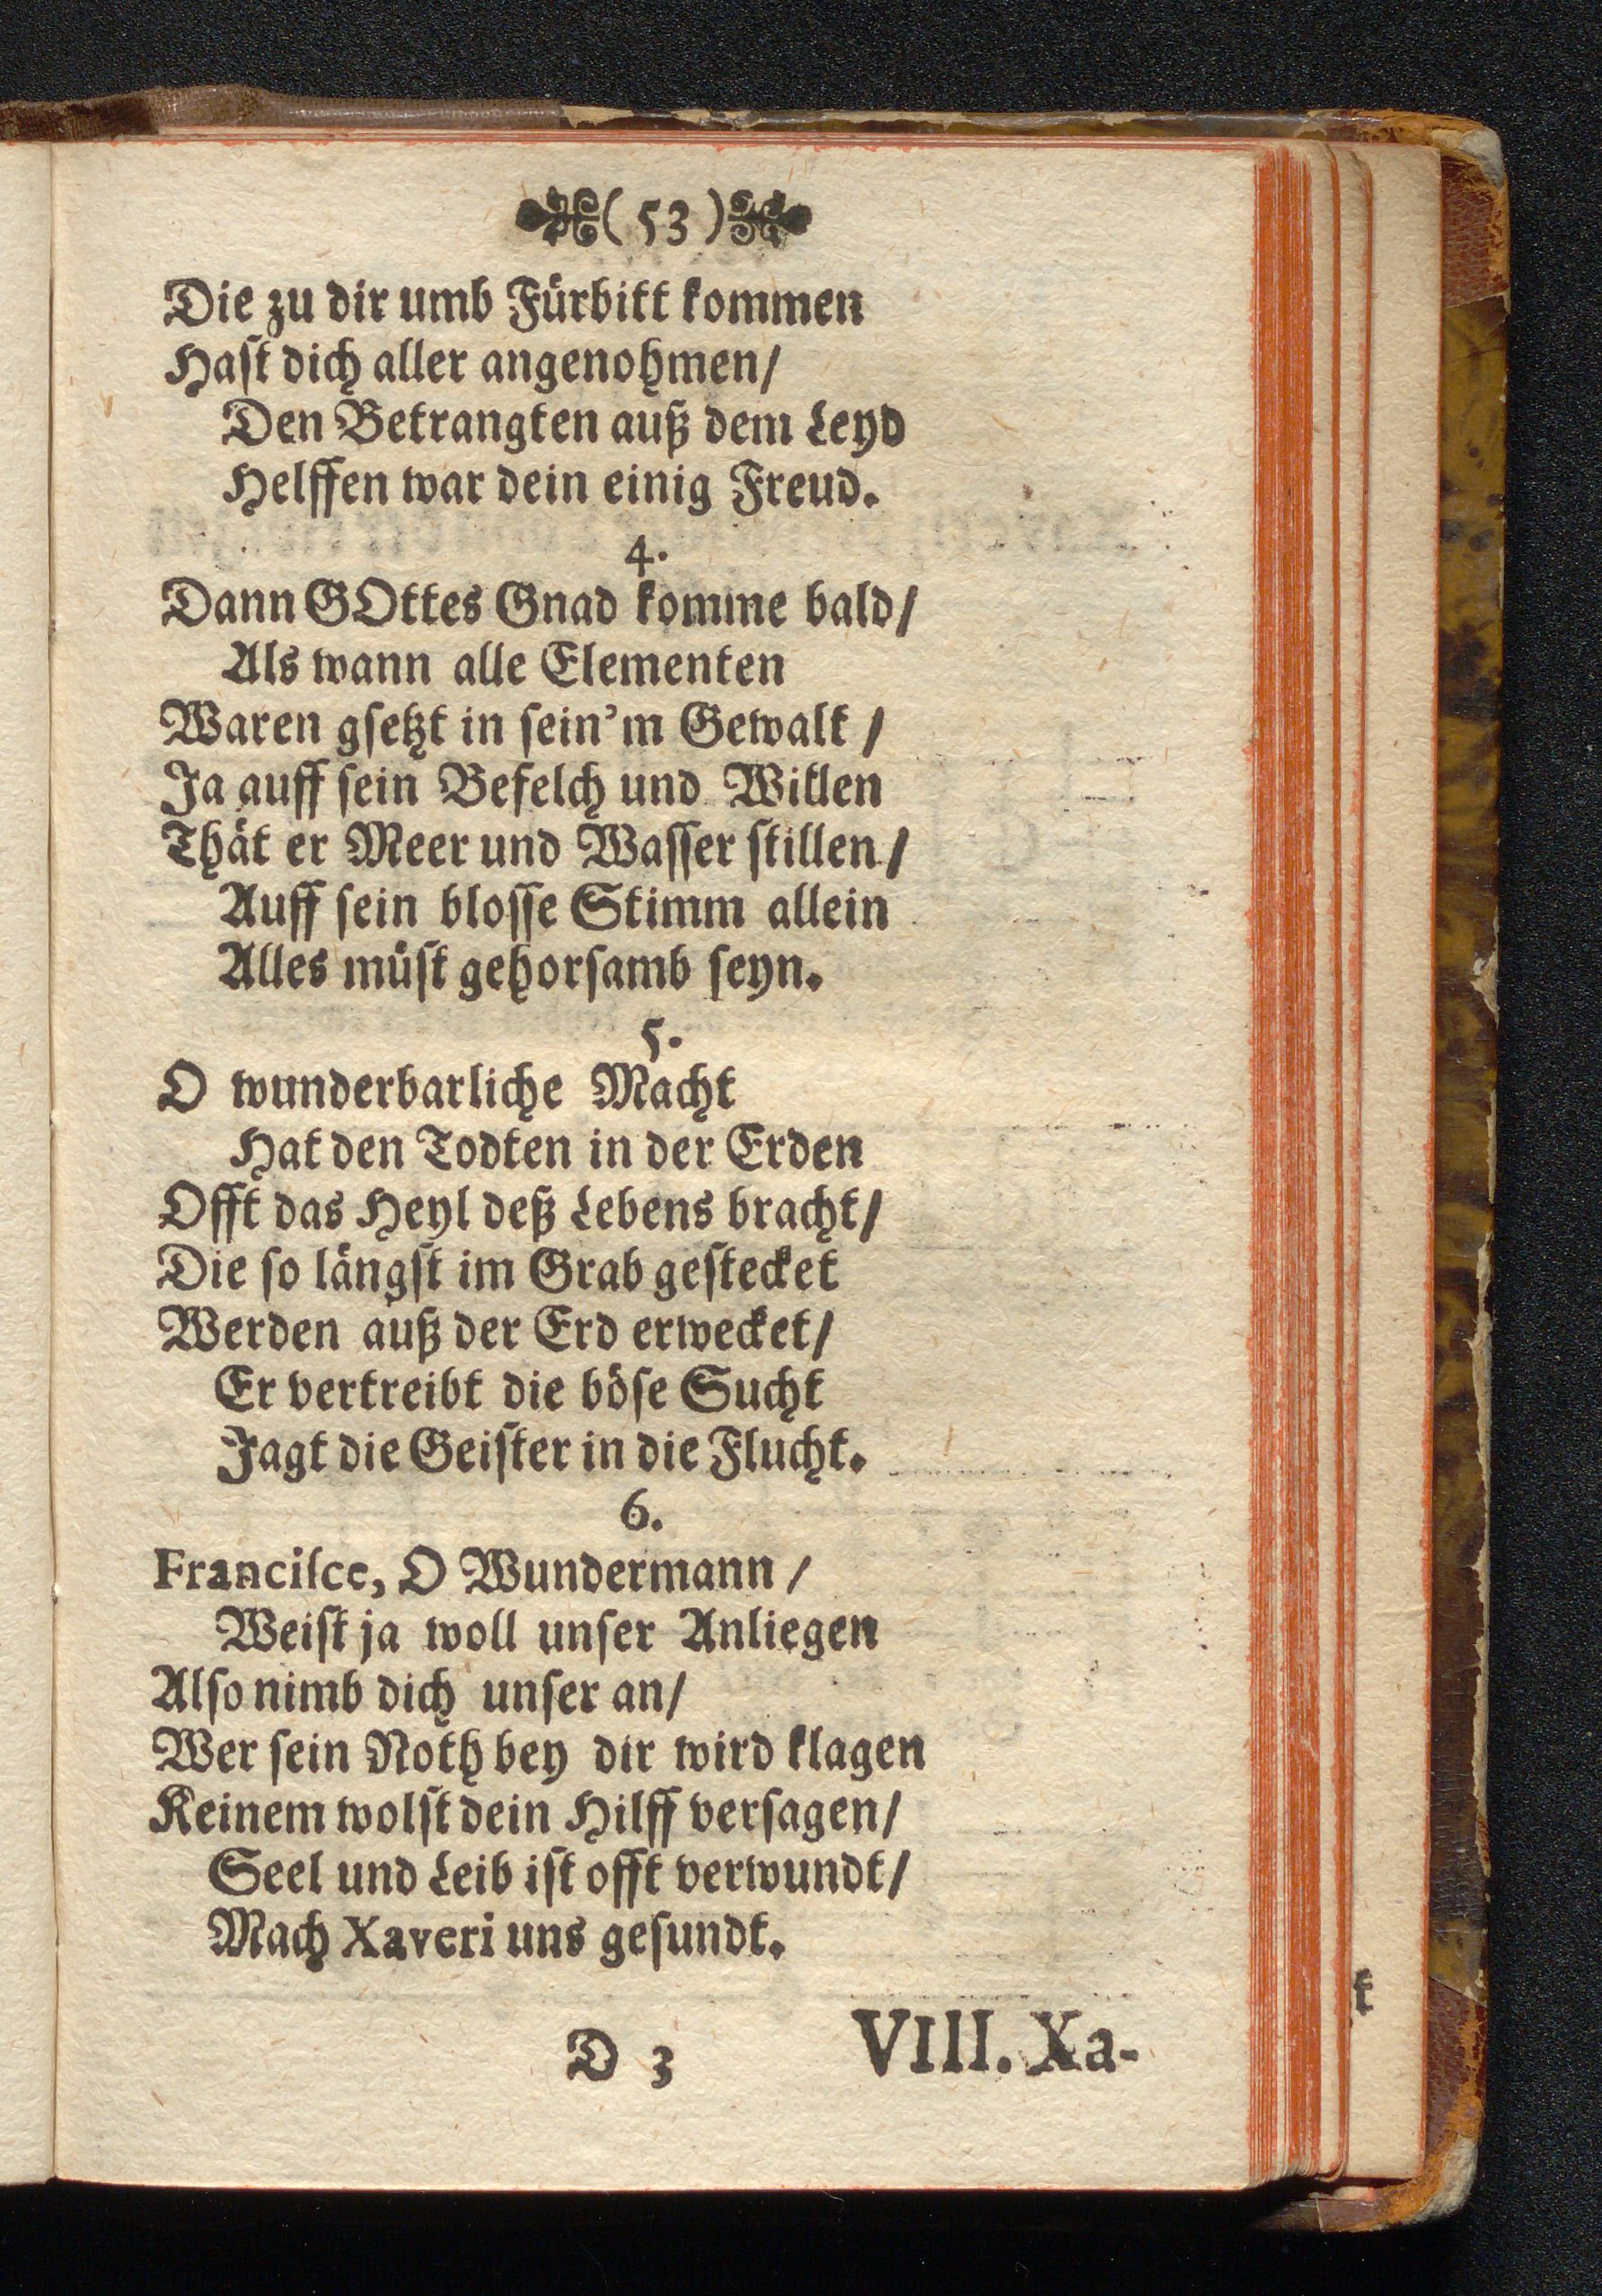 ( 53 )
Die zu dir umb Fürbitt kommen
Hast dich aller angenohmen/
Den Betrangten auß dem Leyd
Helffen war dein einig Freud.
4.
Dann GOttes Gnad komme bald/
Als wann alle Elementen
Waren gsetzt in sein'm Gewalt /
Ja auff sein Befelch und Willen
Thät er Meer und Wasser stillen/
Auff sein blosse Stimm allein
Alles müst gehorsamb seyn.
5.
O wunderbarliche Macht
Hat den Todten in der Erden
Offt das Heyl deß Lebens bracht/
Die so längst im Grab gestecket
Werden auß der Erd erwecket/
Er vertreibt die böse Sucht
Jagt die Geister in die Flucht.
6.
Francisce, O Wundermann /
Weist ja woll unser Anliegen
Also nimb dich unser an/
Wer sein Noth bey dir wird klagen
Keinem wolst dein Hilff versagen/
Seel und Leib ist offt verwundt/
Mach Xaveri uns gesundt.
D 3 VIII. Xa-
t